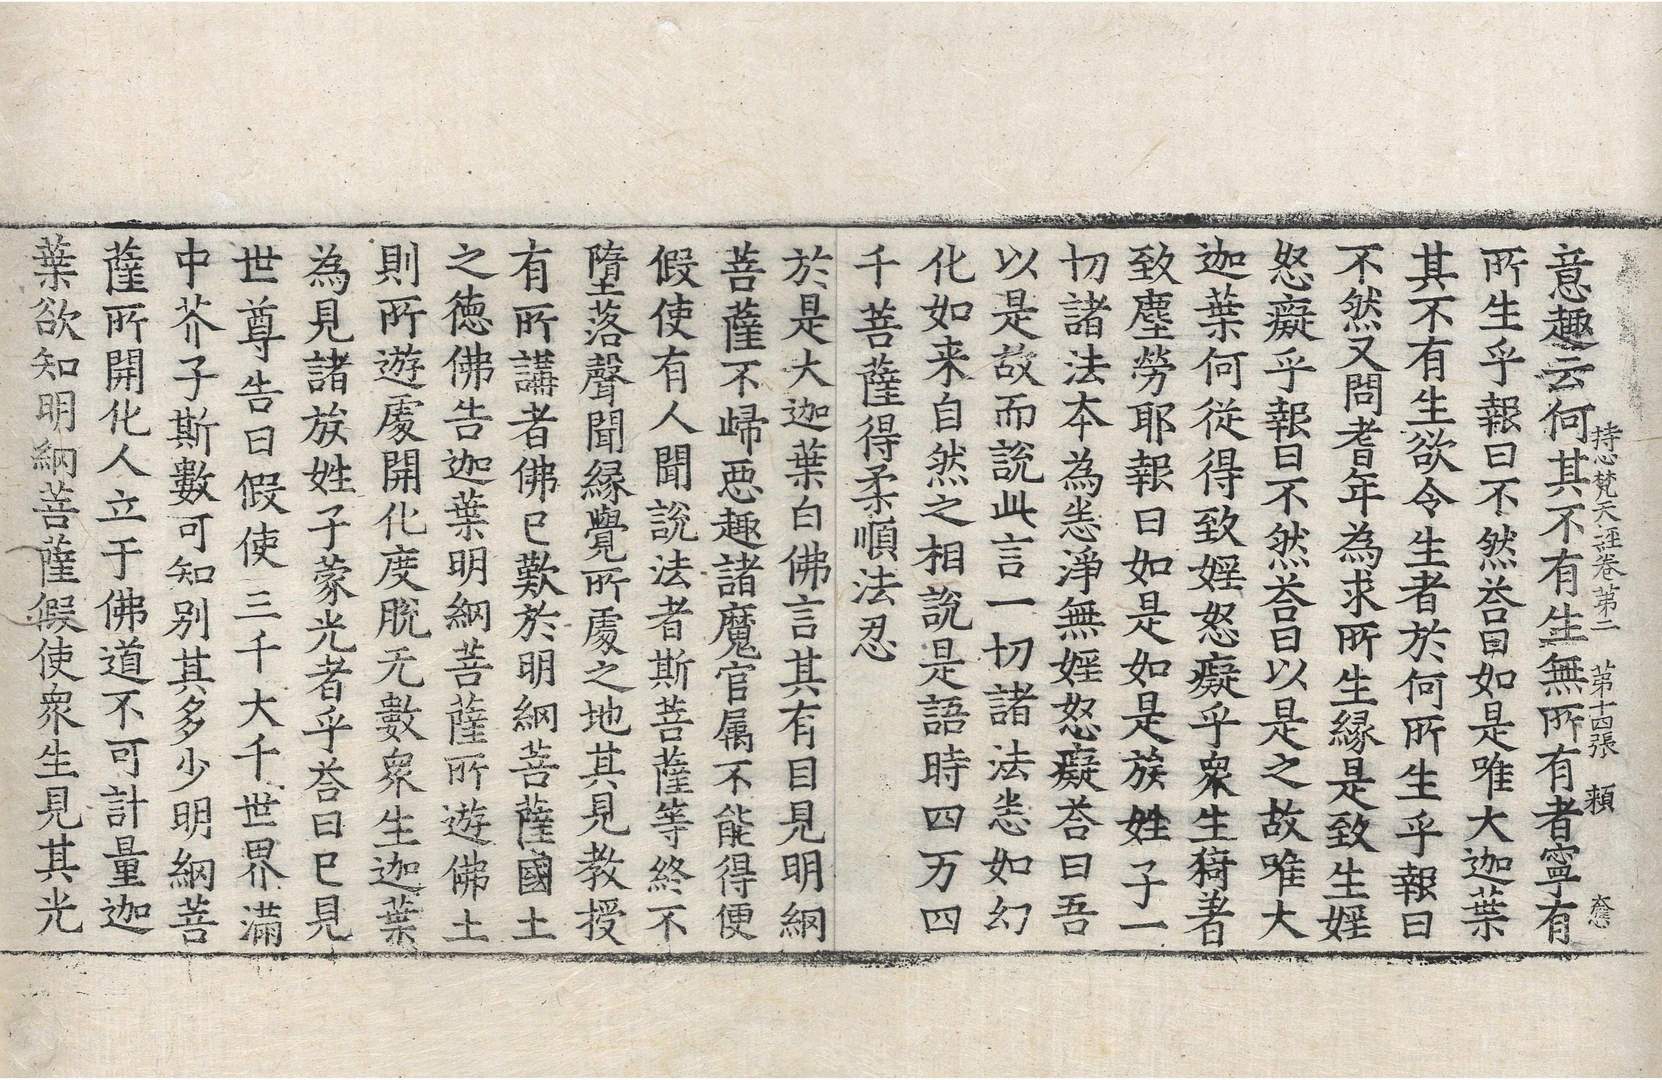 持心梵天經卷第二 第十四張 頼
意趣云何其不有生無所有者寧有
所生乎報曰不然荅曰如是唯大迦葉
其不有生欲令生者於何所生乎報曰
不然又問耆年為求所生縁是致生婬
怒癡乎報曰不然荅曰以是之故唯大
迦葉何從得致婬怒癡乎衆生猗著
致塵勞耶報曰如是如是族姓子一
切諸法本為悉淨無婬怒癡荅曰吾
以是故而說此言一切諸法悉如幻
化如来自然之相說是語時四万四
千菩薩得柔順法忍
於是大迦葉白佛言其有目見明網
菩薩不歸惡趣諸魔官属不能得便
假使有人聞說法者斯菩薩等終不
墮落聲聞縁覺所處之地其見教授
有所講者佛已歎於明網菩薩國土
之徳佛告迦葉明網菩薩所遊佛土
則所遊處開化度脫无數衆生迦葉
為見諸族姓子蒙光者乎荅曰已見
世尊告曰假使三千大千世界滿
中芥子斯數可知别其多少明網菩
薩所開化人立于佛道不可計量迦
葉欲知明網菩薩假使衆生見其光